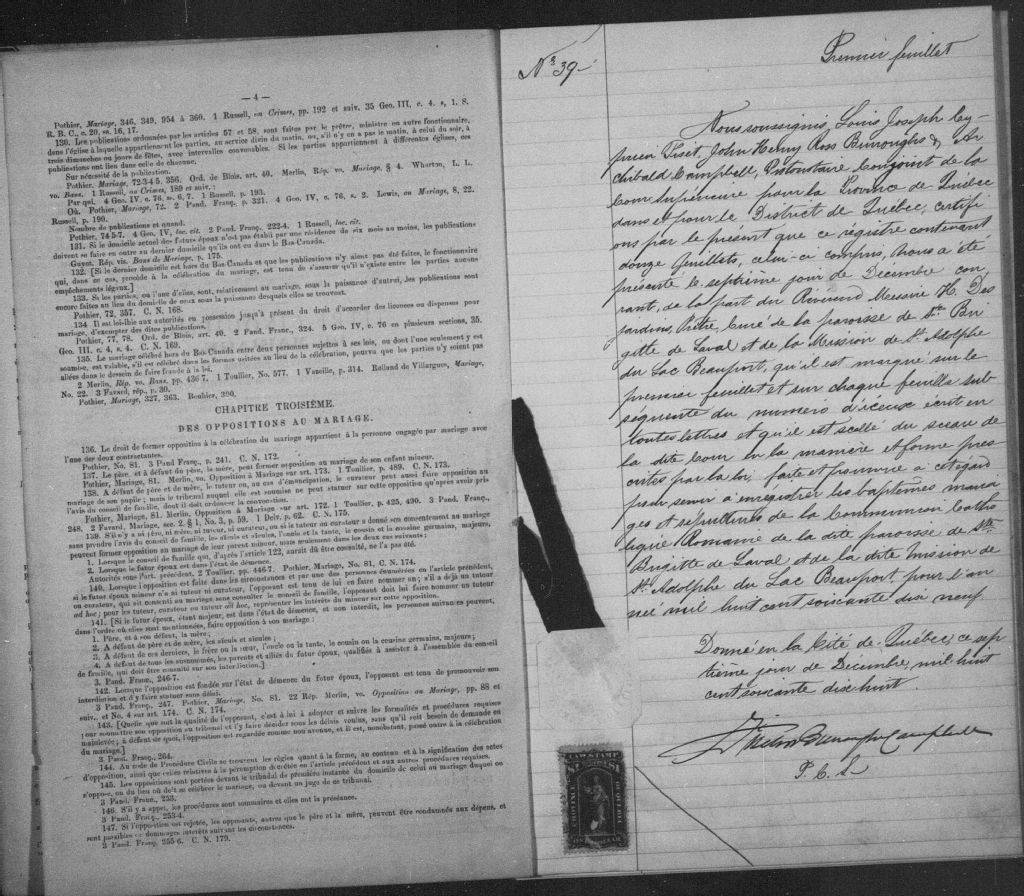 — 4 —
Pothier, Mariage, 346, 349, 954 à 360. 1 Russell, on Crimes, pp. 192 et suiv. 35 Geo. III, c. 4. s, 1. S.
R. B. C., c. 20, ss. 16, 17.
130. Les publications ordonnées par les articles 57 et 58, sont faites par le prêtre, ministre ou autre fonctionnaire,
dans l'église à laquelle appartiennent les parties, au service divin du matin, ou, s'il n'y en a pas le matin, à celui du soir, à
trois dimanches ou jours de fêtes, avec intervalles convenables. Si les parties appartiennent à différentes églises, ces
publications ont lieu dans celle de chacune.
Sur nécessité de la publication.
Pothier, Mariage, 72-3-4-5, 356. Ord. de Blois, art. 40. Merlin, Rép. vo. Mariage, § 4. Wharton, L. L.
vo. Bans. 1 Russell, on Crimes, 189 et suiv.:
Par qui. 4 Geo. IV. c. 76, ss. 6, 7. 1 Russell, p. 193.
Où. Pothier, Mariage, 72. 2 Pand. Franç. p. 321. 4 Geo. IV, c. 76, s. 2. Lewis, on Mariage, 8, 22.
Russell, p. 190.
Nombre de publications et quand.
Pothier, 74-5-7. 4 Geo. IV, loc. cit. 2 Pand. Franç. 222-4. 1 Russell, loc. cit.
131. Si le domicile actuel des futurs époux n'est pas établi par une résidence de six mois au moins, les publications
doivent se faire en outre au dernier domicile qu'ils ont eu dans le Bas-Canada.
Guyot, Rép. vis. Bans de Mariage, p. 175.
132. [Si le dernier domicile est hors du Bas-Canada et que les publications n'y aient pas été faites, le fonctionnaire
qui, dans ce cas, procède à la célébration du mariage, est tenu de s'assurer qu'il n'existe entre les parties aucuns
empêchements légaux.]
133. Si les parties, ou l'une d'elles, sont, relativement au mariage, sous la puissance d'autrui, les publications sont
encore faites au lieu du domicile de ceux sous la puissance desquels elles se trouvent.
Pothier, 72, 357. C. N. 168.
134 Il est loisible aux autorités en possession jusqu'à présent du droit d'accorder des licences ou dispenses pour
mariage, d'exempter des dites publications.
Pothier, 77, 78. Ord. de Blois, art. 40. 2 Pand. Franç., 324. 5 Geo. IV, c. 76 en plusieurs sections, 35.
Geo. III, c. 4, s. 4. C. N. 169.
135. Le mariage célébré hors du Bas-Canada entre deux personnes sujettes à ses lois, ou dont l'une seulement y est
soumise, est valable, s'il est célébré dans les formes usitées au lieu de la célébration, pourvu que les parties n'y soient pas
allées dans le dessein de faire fraude à la loi.
2 Merlin, Rép. vo. Bans, pp. 436 7. 1 Toullier, No. 577. 1 Vazeille, p. 314. Rolland de Villargues, Mariage,
No. 22. 3 Favard, rép., p. 30.
Pothier, Mariage, 327, 363. Bouhier, 390.
CHAPITRE TROISIÈME.
DES OPPOSITIONS AU MARIAGE.
136. Le droit de former opposition à la célébration du mariage appartient à la personne engagée par mariage avec
l'une des deux contractantes.
Pothier, No. 81. 3 Pand Franç., p. 241. C. N. 172.
137. Le père, et à défaut du père, la mère, peut former opposition au mariage de son enfant mineur.
Pothier, Mariage, 81. Merlin, vo. Opposition à Mariage sur art. 173. 1 Toullier, p. 489. C. N. 173.
138. A défaut de père et de mère, le tuteur, ou, au cas d'émancipation, le curateur peut aussi faire opposition au
mariage de son pupile; mais le tribunal auquel elle est soumise ne peut statuer sur cette opposition qu'après avoir pris
l'avis du conseil de famille, dont il doit ordonner la convocation.
Pothier, Mariage, 81. Merlin, Opposition à Mariage sur art. 172. 1 Toullier, p. 425, 490. 3 Pand. Franç.,
248. 2 Favard, Mariage, sec. 2. § 1, No. 3, p. 59. 1 Delv, p. 62. C. N. 175.
139. S'il n'y a ni père, ni mère, ni tuteur, ni curateur, ou si le tuteur ou curateur a donné son consentement au mariage
sans prendre l'avis du conseil de famille, les aïeuls et aïeules, l'oncle et la tante, le cousin et la cousine germains, majeurs,
peuvent former opposition au mariage de leur parent mineur, mais seulement dans les deux cas suivants:
1. Lorsque le conseil de famille qui, d'après l'article 122, aurait dû être consulté, ne l'a pas été.
2. Lorsque le futur époux est dans l'état de démence.
Autorités sous l'art. précédent. 2 Toullier, pp. 446-7. Pothier, Mariage, No. 81, C. N. 174.
140. Lorsque l'opposition est faite dans les circonstances et par une des personnes énumérées en l'article précédent,
si le futur époux mineur n'a ni tuteur ni curateur, l'opposant est tenu de lui en faire nommer un; s'il a déjà un tuteur
ou curateur, qui ait consenti au mariage sans consulter le conseil de famille, l'opposant doit lui faire nommer un tuteur
ad hoc; pour les tuteur, curateur ou tuteur ad hoc, représenter les intérêts du mineur sur cette opposition.
141. [Si le futur époux, étant majeur, est dans l'état de démence, et non interdit, les personnes suivantes peuvent,
dans l'ordre où elles sont mentionnées, faire opposition à son mariage:
1. Père, et à son défaut, la mère;
2. A défaut de père et de mère, les aïeuls et aïeules;
3. A défaut de ces derniers, le frère ou la sœur, l'oncle ou la tante, le cousin ou la cousine germains, majeurs;
4. A défaut de tous les susnommés, les parents et alliés du futur époux, qualifiés à assister à l'assemblée du conseil
de famille, qui doit être consulté sur son interdiction.]
3. Pand. Franç., 246-7.
142. Lorsque l'opposition est fondée sur l'état de démence du futur époux, l'opposant est tenu de promouvoir son
interdiction et d'y faire statuer sans délai.
3 Pand. Franç., 247. Pothier, Mariage, No. 81. 22 Rép. Merlin, vo. Opposition au Mariage, pp. 88 et
suiv., et No. 4 sur art. 174. C. N. 174.
143. [Quelle que soit la qualité de l'opposant, c'est à lui à adopter et suivre les formalités et procédures requises
pour soumettre son opposition au tribunal et l'y faire décider sous les délais voulus, sans qu'il soit besoin de demande en
mainlevée; à défaut de quoi, l'opposition est regardée comme non avenue, et il est, nonobstant, passé outre à la célébration
du mariage.]
3 Pand. Franç., 264.
144. Au code de Procédure Civile se trouvent les règles quant à la forme, au contenu et à la signification des actes
d'opposition, ainsi que celles relatives à la péremption décrétée en l'article précédent et aux autres procédures requises.
145. Les oppositions sont portées devant le tribunal de première instance du domicile de celui au mariage duquel on
s'oppose, ou du lieu où doit se célébrer le mariage, ou devant un juge de ce tribunal.
3 Pand. Franç., 253.
146. S'il y a appel, les procédures sont sommaires et elles ont la préséance.
3 Pand. Franç., 253-4.
147. Si l'opposition est rejetée, les opposants, autres que le père et la mère, peuvent être condamnés aux dépens, et
sont passibles de dommages intérêts suivant les circonstances.
3 Pand. Franç. 255-6. C. N. 179.
No 39
Premier feuillet
Nous soussignés, Louis Joseph Cy-
prien Fiset, John Henry Ross Burroughs & Ar
chibald Campbell, Protonotaire Conjoint de la
Cour Supérieure pour la Province de Québec
dans et pour le District de Québec, certifi
ons par le présent que ce registre contenant
douze feuillets, celui-ci compris, nous a été
présenté le septième jour de Décembre cou
rant, de la part du Révérend Messire H. Des
jardins, Prêtre, Curé de la paroisse de Ste Bri
gitte de Laval et de la Mission de St. Adolphe
du Lac Beauport, qu'il est marqué sur le
premier feuillet et sur chaque feuille sub
séquente du numéro d'iceux écrit en
toutes lettres et qu'il est scellé du sceau de
la dite Cour en la manière et forme pres
crites par la loi, faite et pourvue à cet égard
pour servir à enregistrer les baptêmes maria
ges et sépultures de la Communion Catho
lique Romaine de la dite paroisse de Ste
Brigitte de Laval et de la dite mission de
St. Adolphe du Lac Beauport pour l'an
neé mil huit cent soixante dix neuf.
Donné en la Cité de Québec, ce sep
tième jour de Décembre, mil huit
cent soixante dix huit.
Fiset Burroughs Campbell
P. C. S.
$1 LAW STAMP $1